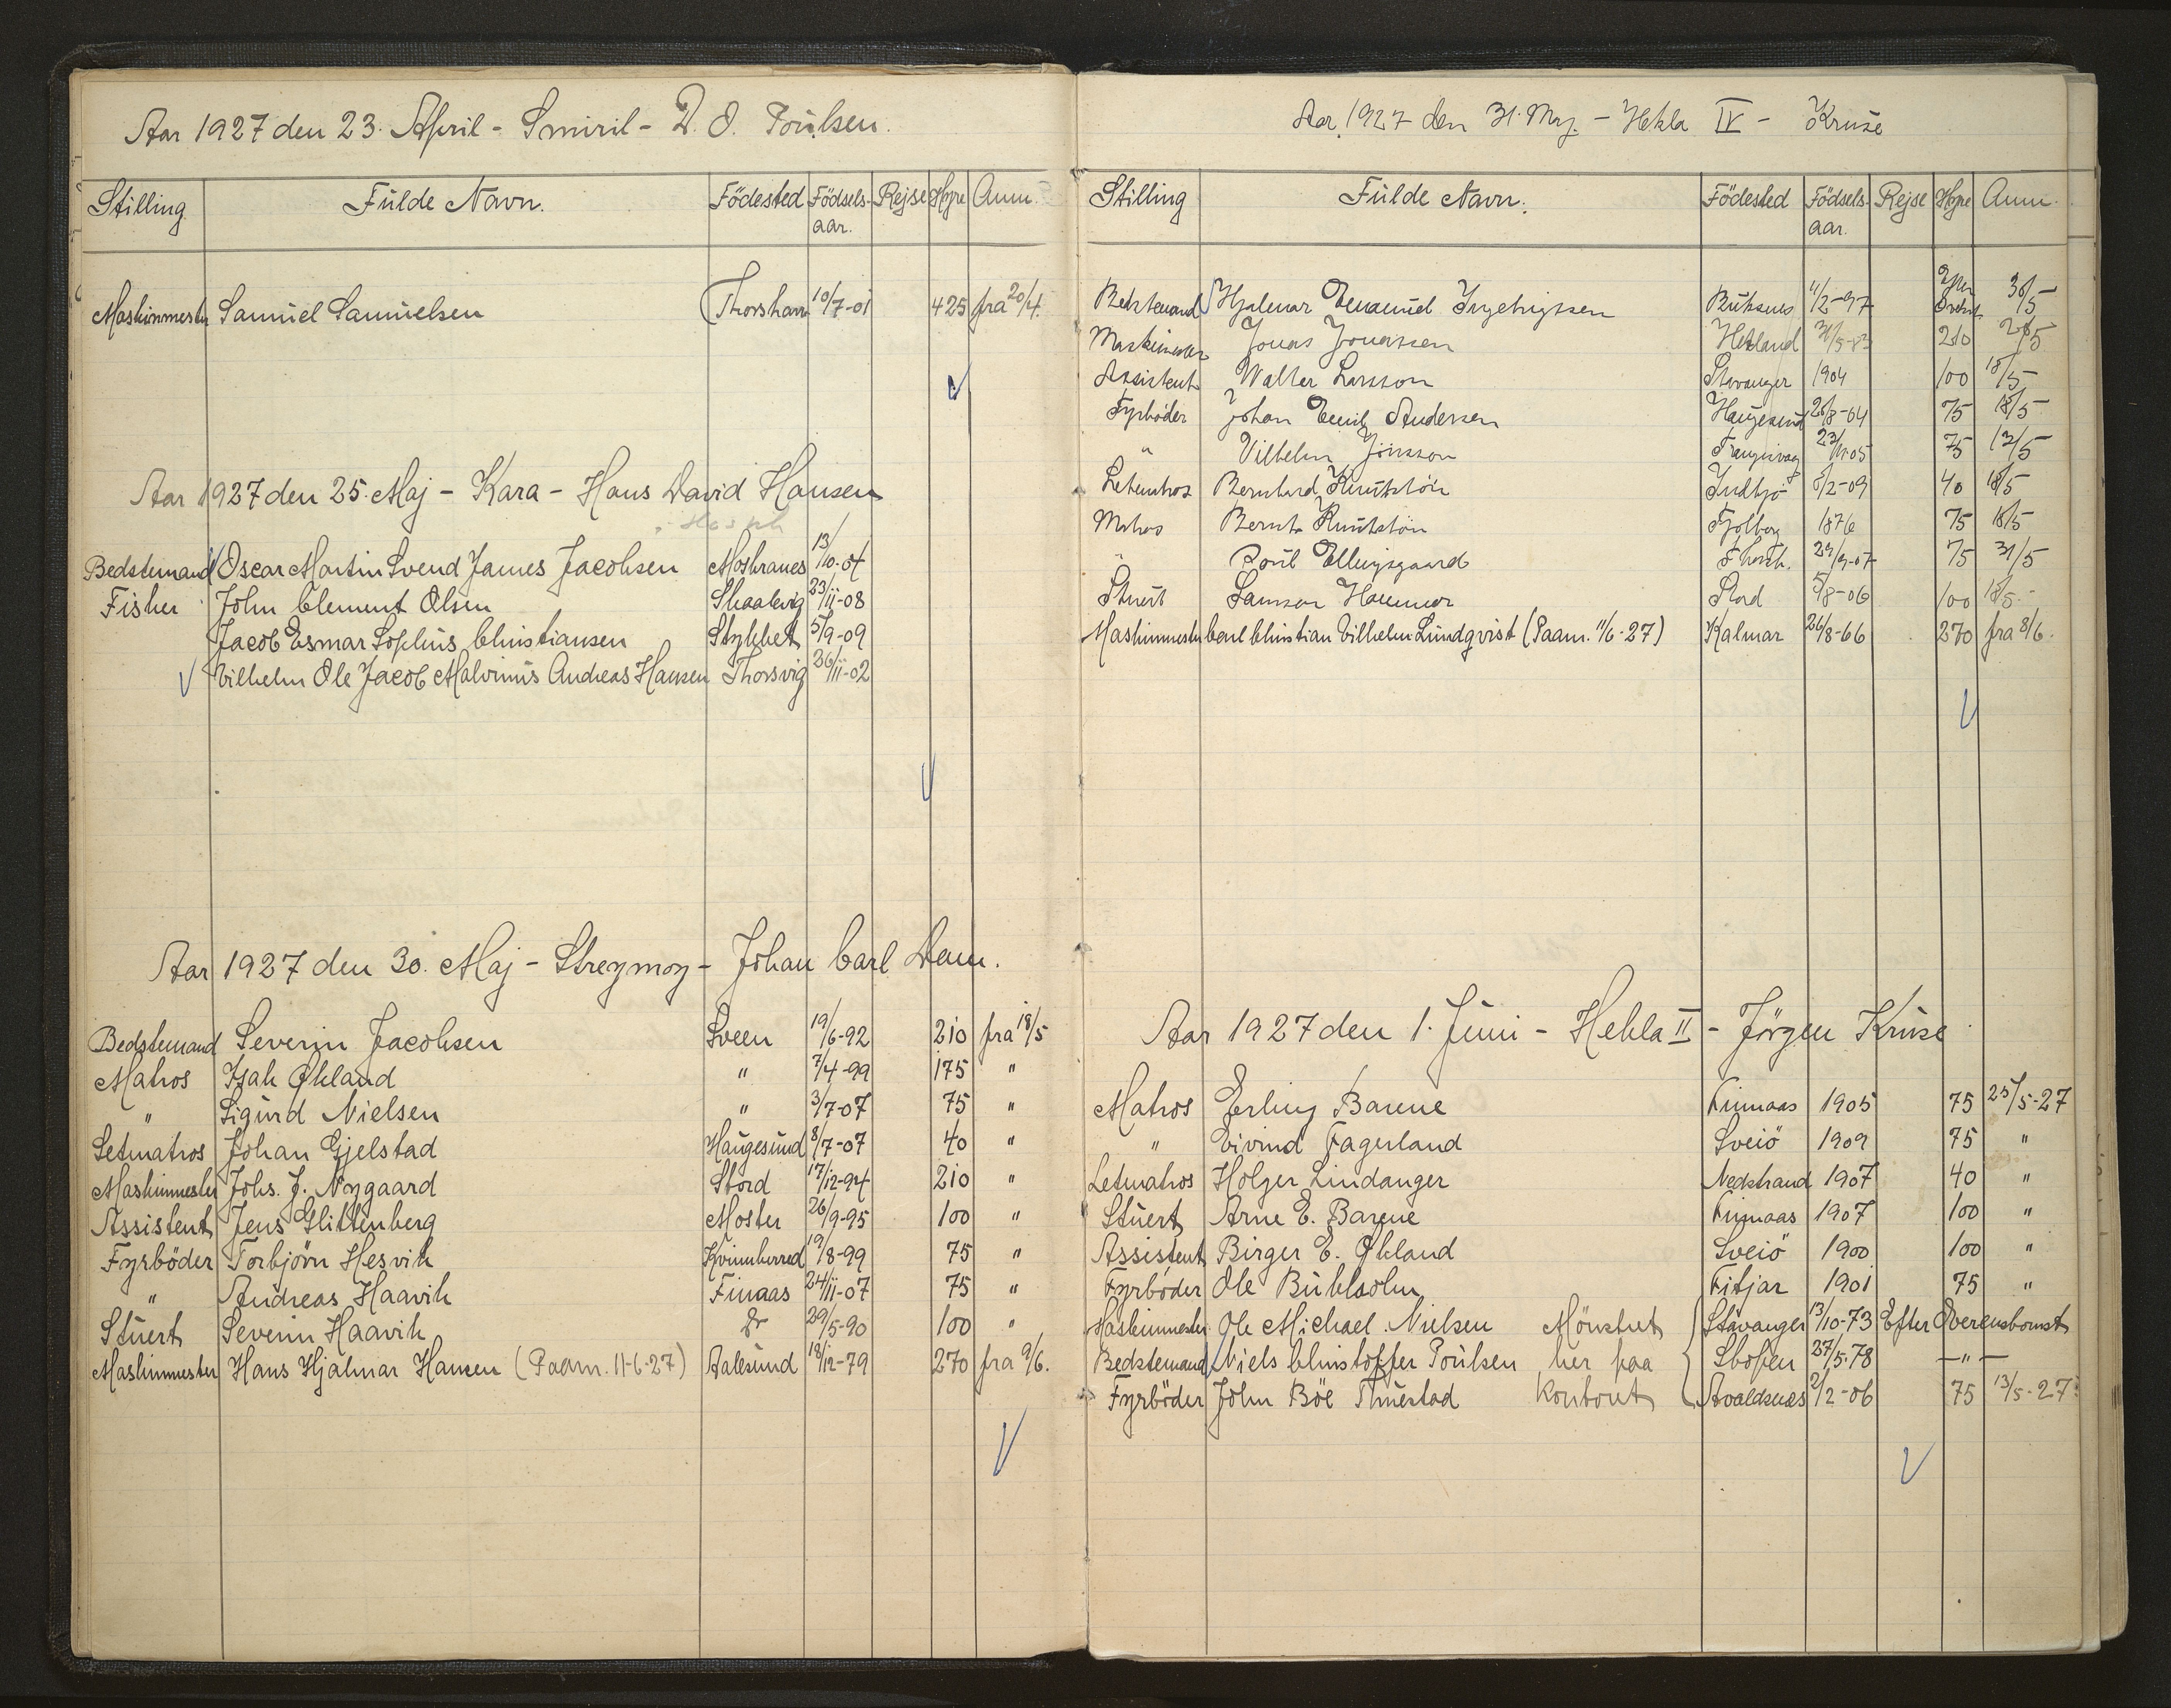 Aar 1927 den 23. April - Smiril - D. O. Poulsen.
Stilling Fulde Navn. Födested Födsels-aar. Rejse Hyre Anm.
Maskinmester Samuel Samuelsen Thorshavn 10/7-01 425 fra 20/4.
Aar 1927 den 25. Maj - Kara - Hans David Hansen
Bedstemand Oscar Martin Svend James Jacobsen Moskranes 13/10-04
Fisker John Clement Olsen Skaalevig 23/11-08
Jacob Esmar Sophus Christiansen Stykket 5/9-09
Vilhelm Ole Jacob Malvinus Andreas Hansen Thorsvig 26/11-02
Aar 1927 den 30. Maj - Streymoy - Johan Carl Dam.
Bedstemand Severin Jacobsen Sveen 19/6-92 210 fra 18/5
Matros Isak Økland " 7/4-99 175 "
" Sigurd Nielsen " 3/7-07 75 "
Letmatros Johan Gjelstad Haugesund 8/7-07 40 "
Maskinmester Johs. J. Nygaard Stord 17/12-94 210 "
Assistent Jens Glittenberg Moster 26/9-95 100 "
Fyrböder Torbjörn Hesvik Kvinnherred 19/8-99 75 "
" Andreas Haavik Finaas 24/11-07 75 "
Stuert Severin Haavik Do 29/5-90 100 "
Maskinmester Hans Hjalmar Hansen (Paam. 11-6-27) Aalesund 18/12-79 270 fra 9/6.
Aar 1927 den 31. Maj. - Hekla IV - Kruse
Stilling Fulde Navn. Födested Födsels-aar. Rejse Hyre Anm.
Bedstemand Hjalmar 11/2-97 30/5
Maskinmester Jonas Jonassen Hetland 210
Assistent Walter Larsson Stavanger 1904 100 18/5
Fyrböder Johan Emil Andersen Haugesund 26/8-04 75 18/5
" Vilhelm Jönsson 75 12/5
Letmatros Bernhard Knutsson 6/2-09 40 18/5
Matros Bernt Knutsson 1876 75 18/5
" Poul Ellingsgaard Thorsh. 75 31/5
Stuert Samson Hammer Stord 5/8-06 100 18/5
Maskinmester Carl Christian Vilhelm Lundqvist (Paam. 11/6-27) Kalmar 26/8-66 270 fra 8/6.
Aar 1927 den 1. Juni - Hekla II - Jörgen Kruse
Matros Erling Barene Finnaas 1905 75 25/5-27
" Eivind Fagerland Sveiö 1909 75 "
Letmatros Holger Lindanger Nedstrand 1907 40 "
Stuert Arne E. Barene Finnaas 1907 100 "
Assistent Birger E. Økland Sveiö 1900 100 "
Fyrböder Ole Buhlsohn Fitjar 1901 75 "
Maskinmester Ole Michael Nielsen Mönstret Stavanger 13/10-73 Efter Overenskomst
Bedstemand Niels Christoffer Poulsen her paa Skopen 27/5-78 -"-
Fyrböder John Böe Thuestad Kontoret Avaldsnæs 2/2-06 75 13/5-27